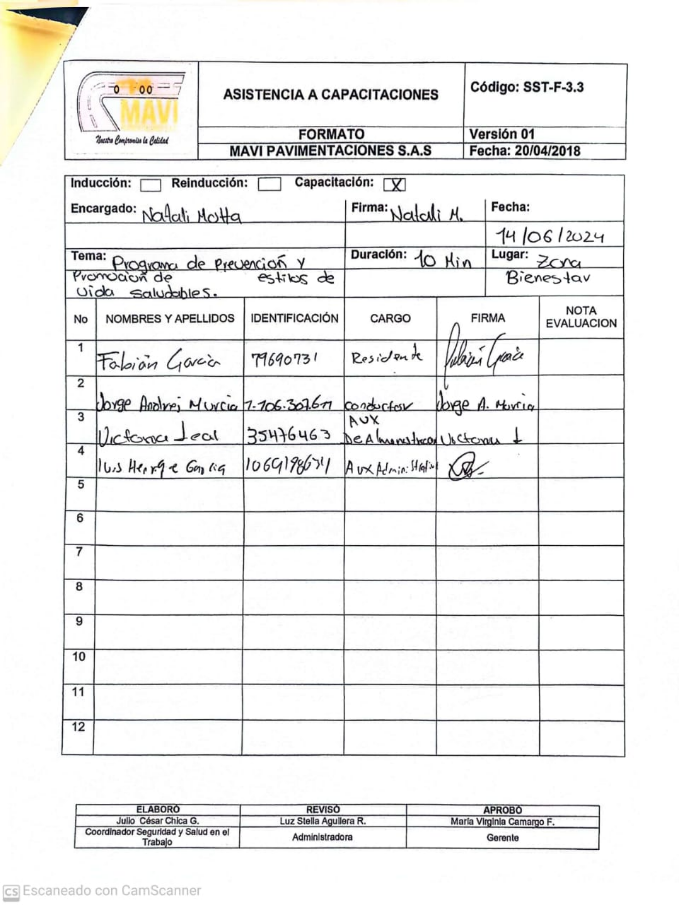 MAVI
Nuestro Compromiso la Calidad
ASISTENCIA A CAPACITACIONES
Código: SST-F-3.3
FORMATO
Versión 01
MAVI PAVIMENTACIONES S.A.S
Fecha: 20/04/2018
Inducción: Reinducción: Capacitación: X
Encargado: Natali Motta Firma: Natali M. Fecha:
14/06/2024
Tema: Programa de Prevención y Duración: 10 Min Lugar: Zona
Promoción de estilos de Bienestar
vida saludables.
No NOMBRES Y APELLIDOS IDENTIFICACIÓN CARGO FIRMA NOTA EVALUACION
1 Fabián García 79690731 Residente Fabián García
2 Jorge Andrej Murcia conductor Jorge A. Murcia
3 Victoria Leal 35476463 AUX De Victoria L
4 Luis García Aux Administrativo
5
6
7
8
9
10
11
12
ELABORÓ REVISÓ APROBÓ
Julio César Chica G. Luz Stella Aguilera R. María Virginia Camargo F.
Coordinador Seguridad y Salud en el Trabajo Administradora Gerente
CS Escaneado con CamScanner